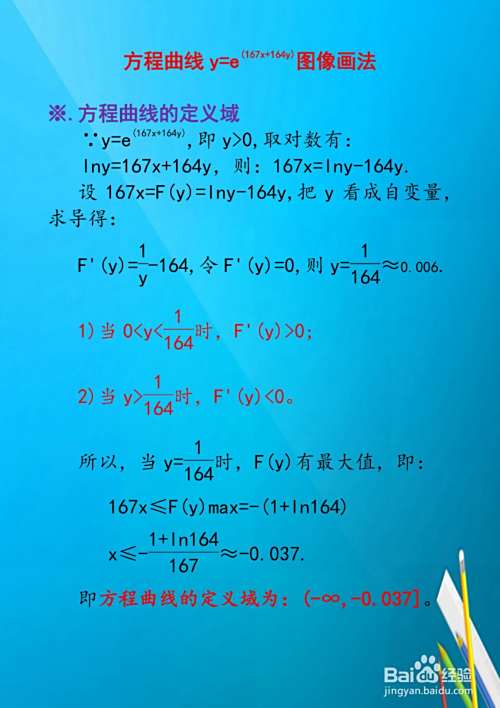 方程曲线y=e^(167x+164y)图像画法
※.方程曲线的定义域
∵y=e^(167x+164y),即y>0,取对数有:
lny=167x+164y, 则: 167x=lny-164y.
设167x=F(y)=lny-164y,把 y 看成自变量,
求导得:
F'(y)=1/y-164,令F'(y)=0,则y=1/164≈0.006.
1)当0<y<1/164时, F'(y)>0;
2)当y>1/164时, F'(y)<0。
所以, 当y=1/164时, F(y)有最大值, 即:
167x≤F(y)max=-(1+ln164)
x≤-(1+ln164)/167≈-0.037.
即方程曲线的定义域为: (-∞,-0.037]。
Bai度经验
jingyan.baidu.com